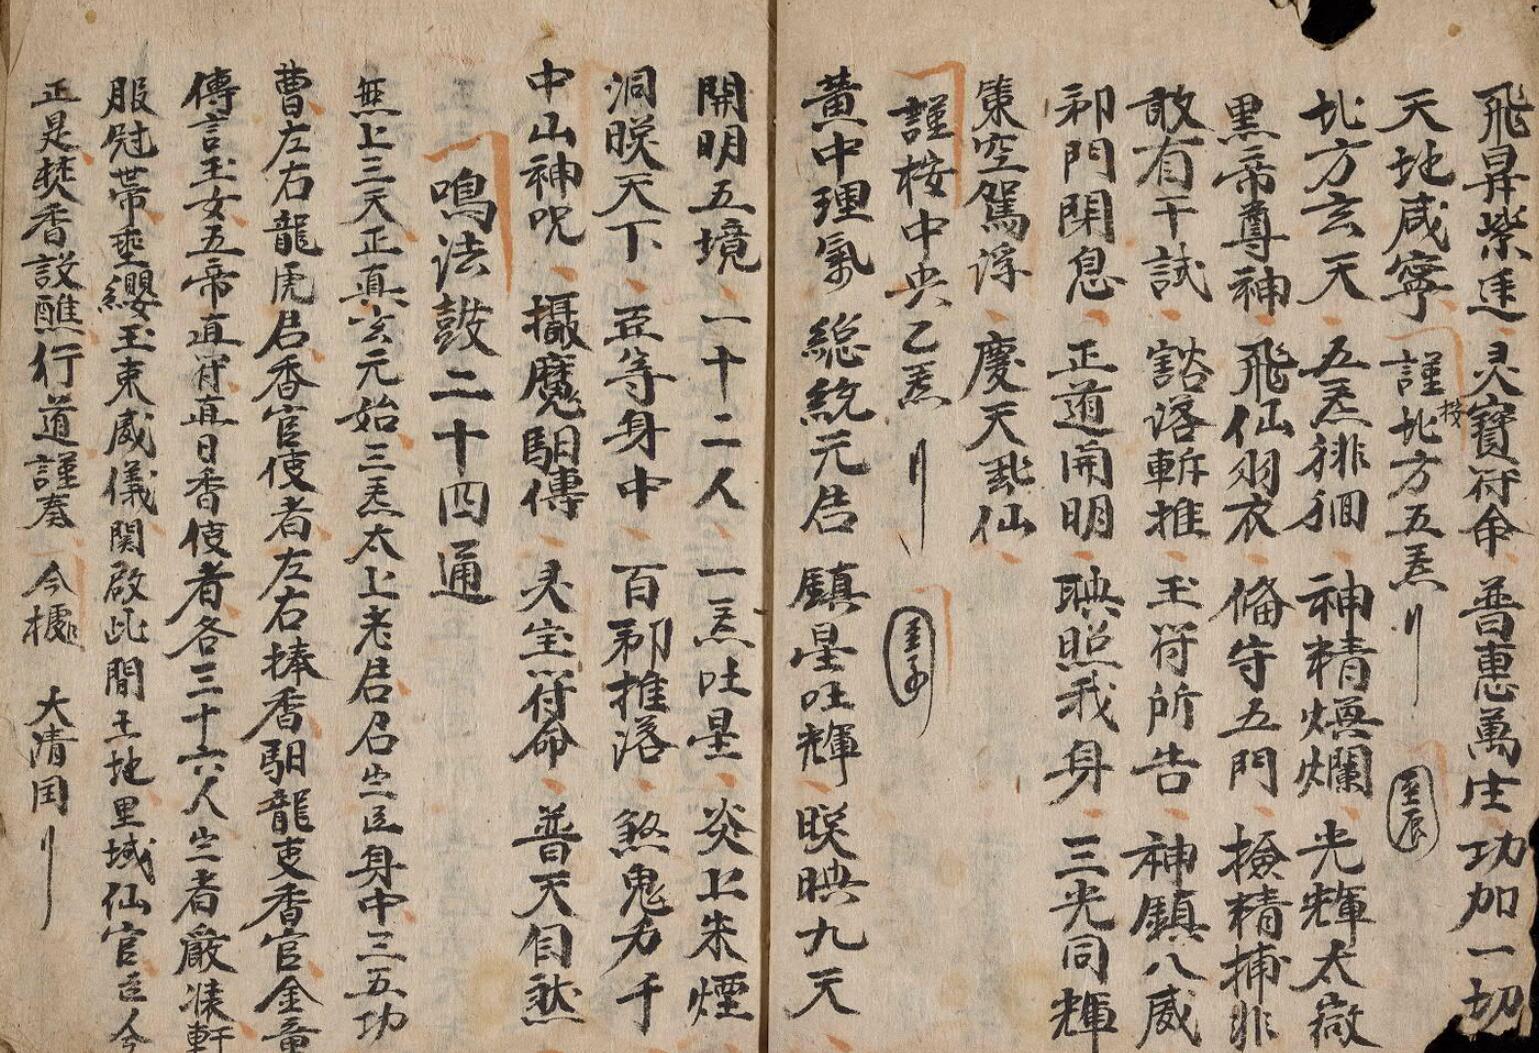 飛昇紫庭 灵寳符命 普惠萬生 功加一切
天地咸寧 謹按北方五炁刂 至辰
北方玄天 五炁徘徊 神精煥爛 光輝太微
黒帝尊神 飛仙羽衣 俻守五門 撿精捕非
敢有干試 豁落斬摧 玉符所告 神鎮八威
邪門閉息 正道開明 映照我身 三光同輝
策空駕浮 慶天飛仙
謹按中央乙炁刂 至子
黄中理氣 総統元吉 鎮星吐輝 映映九天
開明五境 一十二人 一炁吐星 炎上朱煙
洞映天下 五等身中 百邪摧落 煞鬼万千
中山神呪 攝魔馹傳 灵宝符命 普天自然
鳴法鼓二十四通
無上三天正真玄元始三炁太上老君召出臣身中三五功
曹左右龍虎君香官使者左右捧香馹龍吏香官金童
傳言玉女五帝直符直日香使者各三十六人出者嚴装軒
服冠帶垂纓玉束威儀関啟此間土地里域仙官臣今
正是焚香設醮行道謹奏 今據 大清国刂